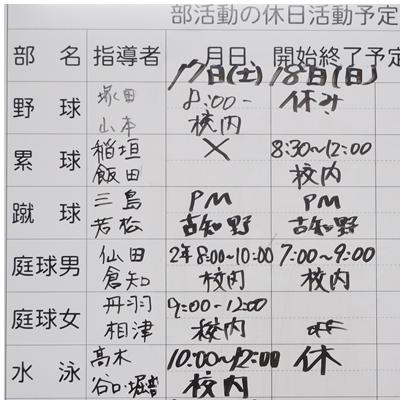 部活動の休日活動予定
部 名 指導者 月日 開始終了予定
17日(土) 18日(日)
野 球 塚田 8:00- 休み
山本 校内
累 球 稲垣 × 8:30~12:00
飯田 校内
蹴 球 三島 PM PM
若松 古知野 古知野
庭球男 仙田 2年8:00~10:00 7:00~9:00
倉知 校内 校内
庭球女 丹羽 9:00-12:00
相津 校内 off
水 泳 高木 10:00~12:00 休
谷口・堀 校内